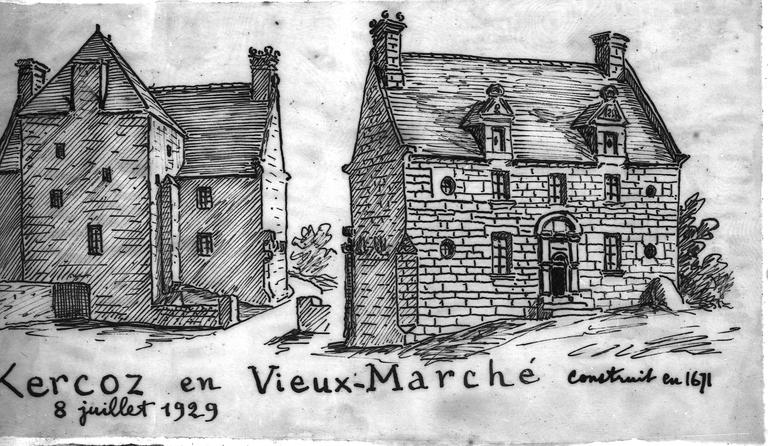 Kercoz en Vieux-Marché construit en 1671
8 juillet 1929